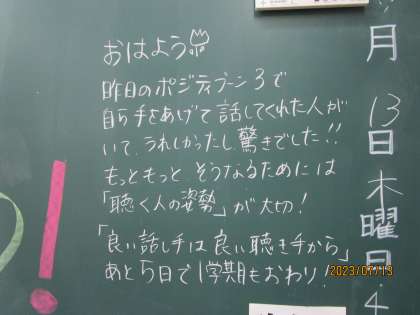 おはよう
昨日のポジティブーン3で
自ら手をあげて話してくれた人が
いて、うれしかったし驚きでした!!
もっともっと、そうなるためには
「聴く人の姿勢」が大切!
「良い話し手は良い聴き手から」
あと5日で1学期もおわり!
月13日木曜日
2023/07/13